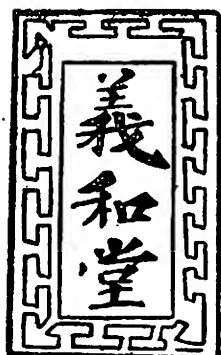 義和堂